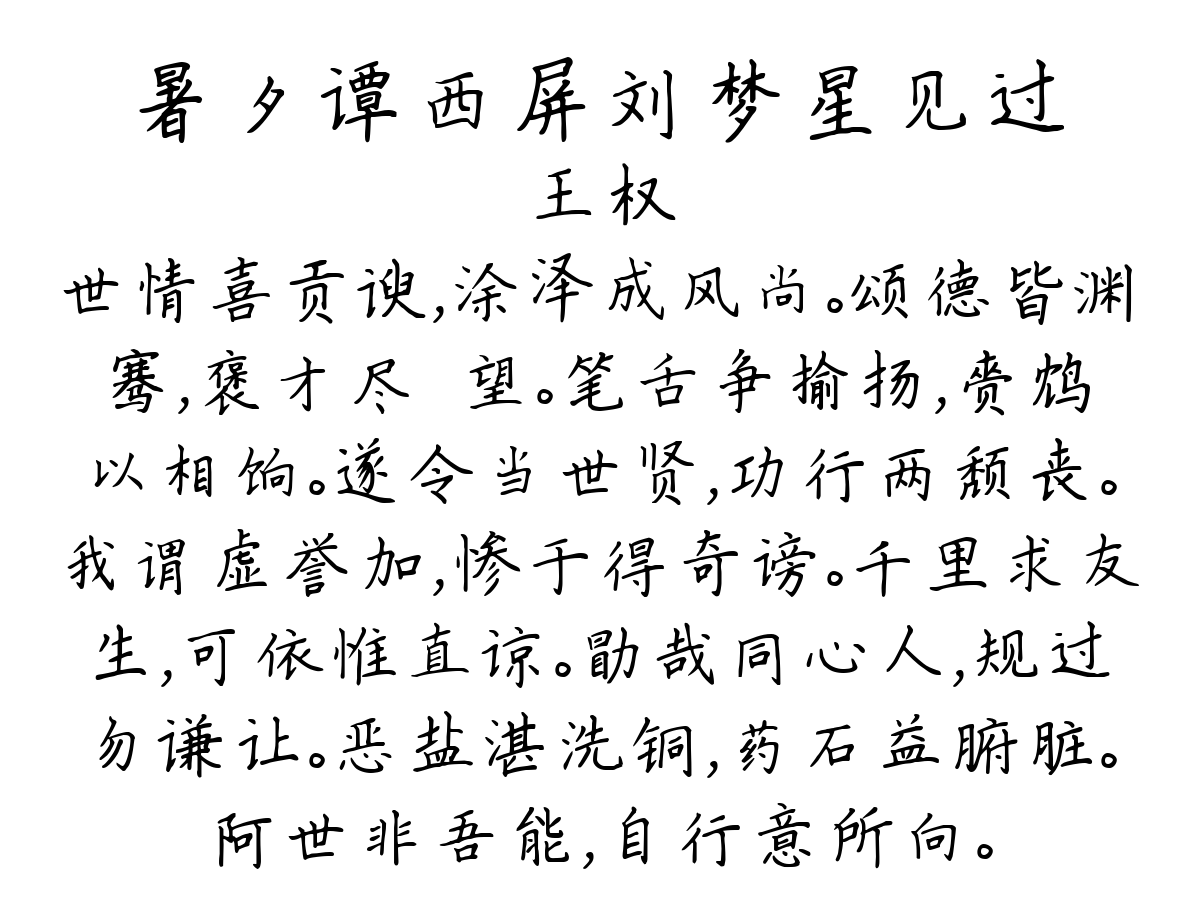 暑夕谭西屏刘梦星见过
王权
世情喜贡谀,涂泽成风尚。颂德皆渊
骞,褒才尽 望。笔舌争揄扬,赍鸩
以相饷。遂令当世贤,功行两颓丧。
我谓虚誉加,惨于得奇谤。千里求友
生,可依惟直谅。勖哉同心人,规过
勿谦让。恶盐湛洗铜,药石益腑脏。
阿世非吾能,自行意所向。